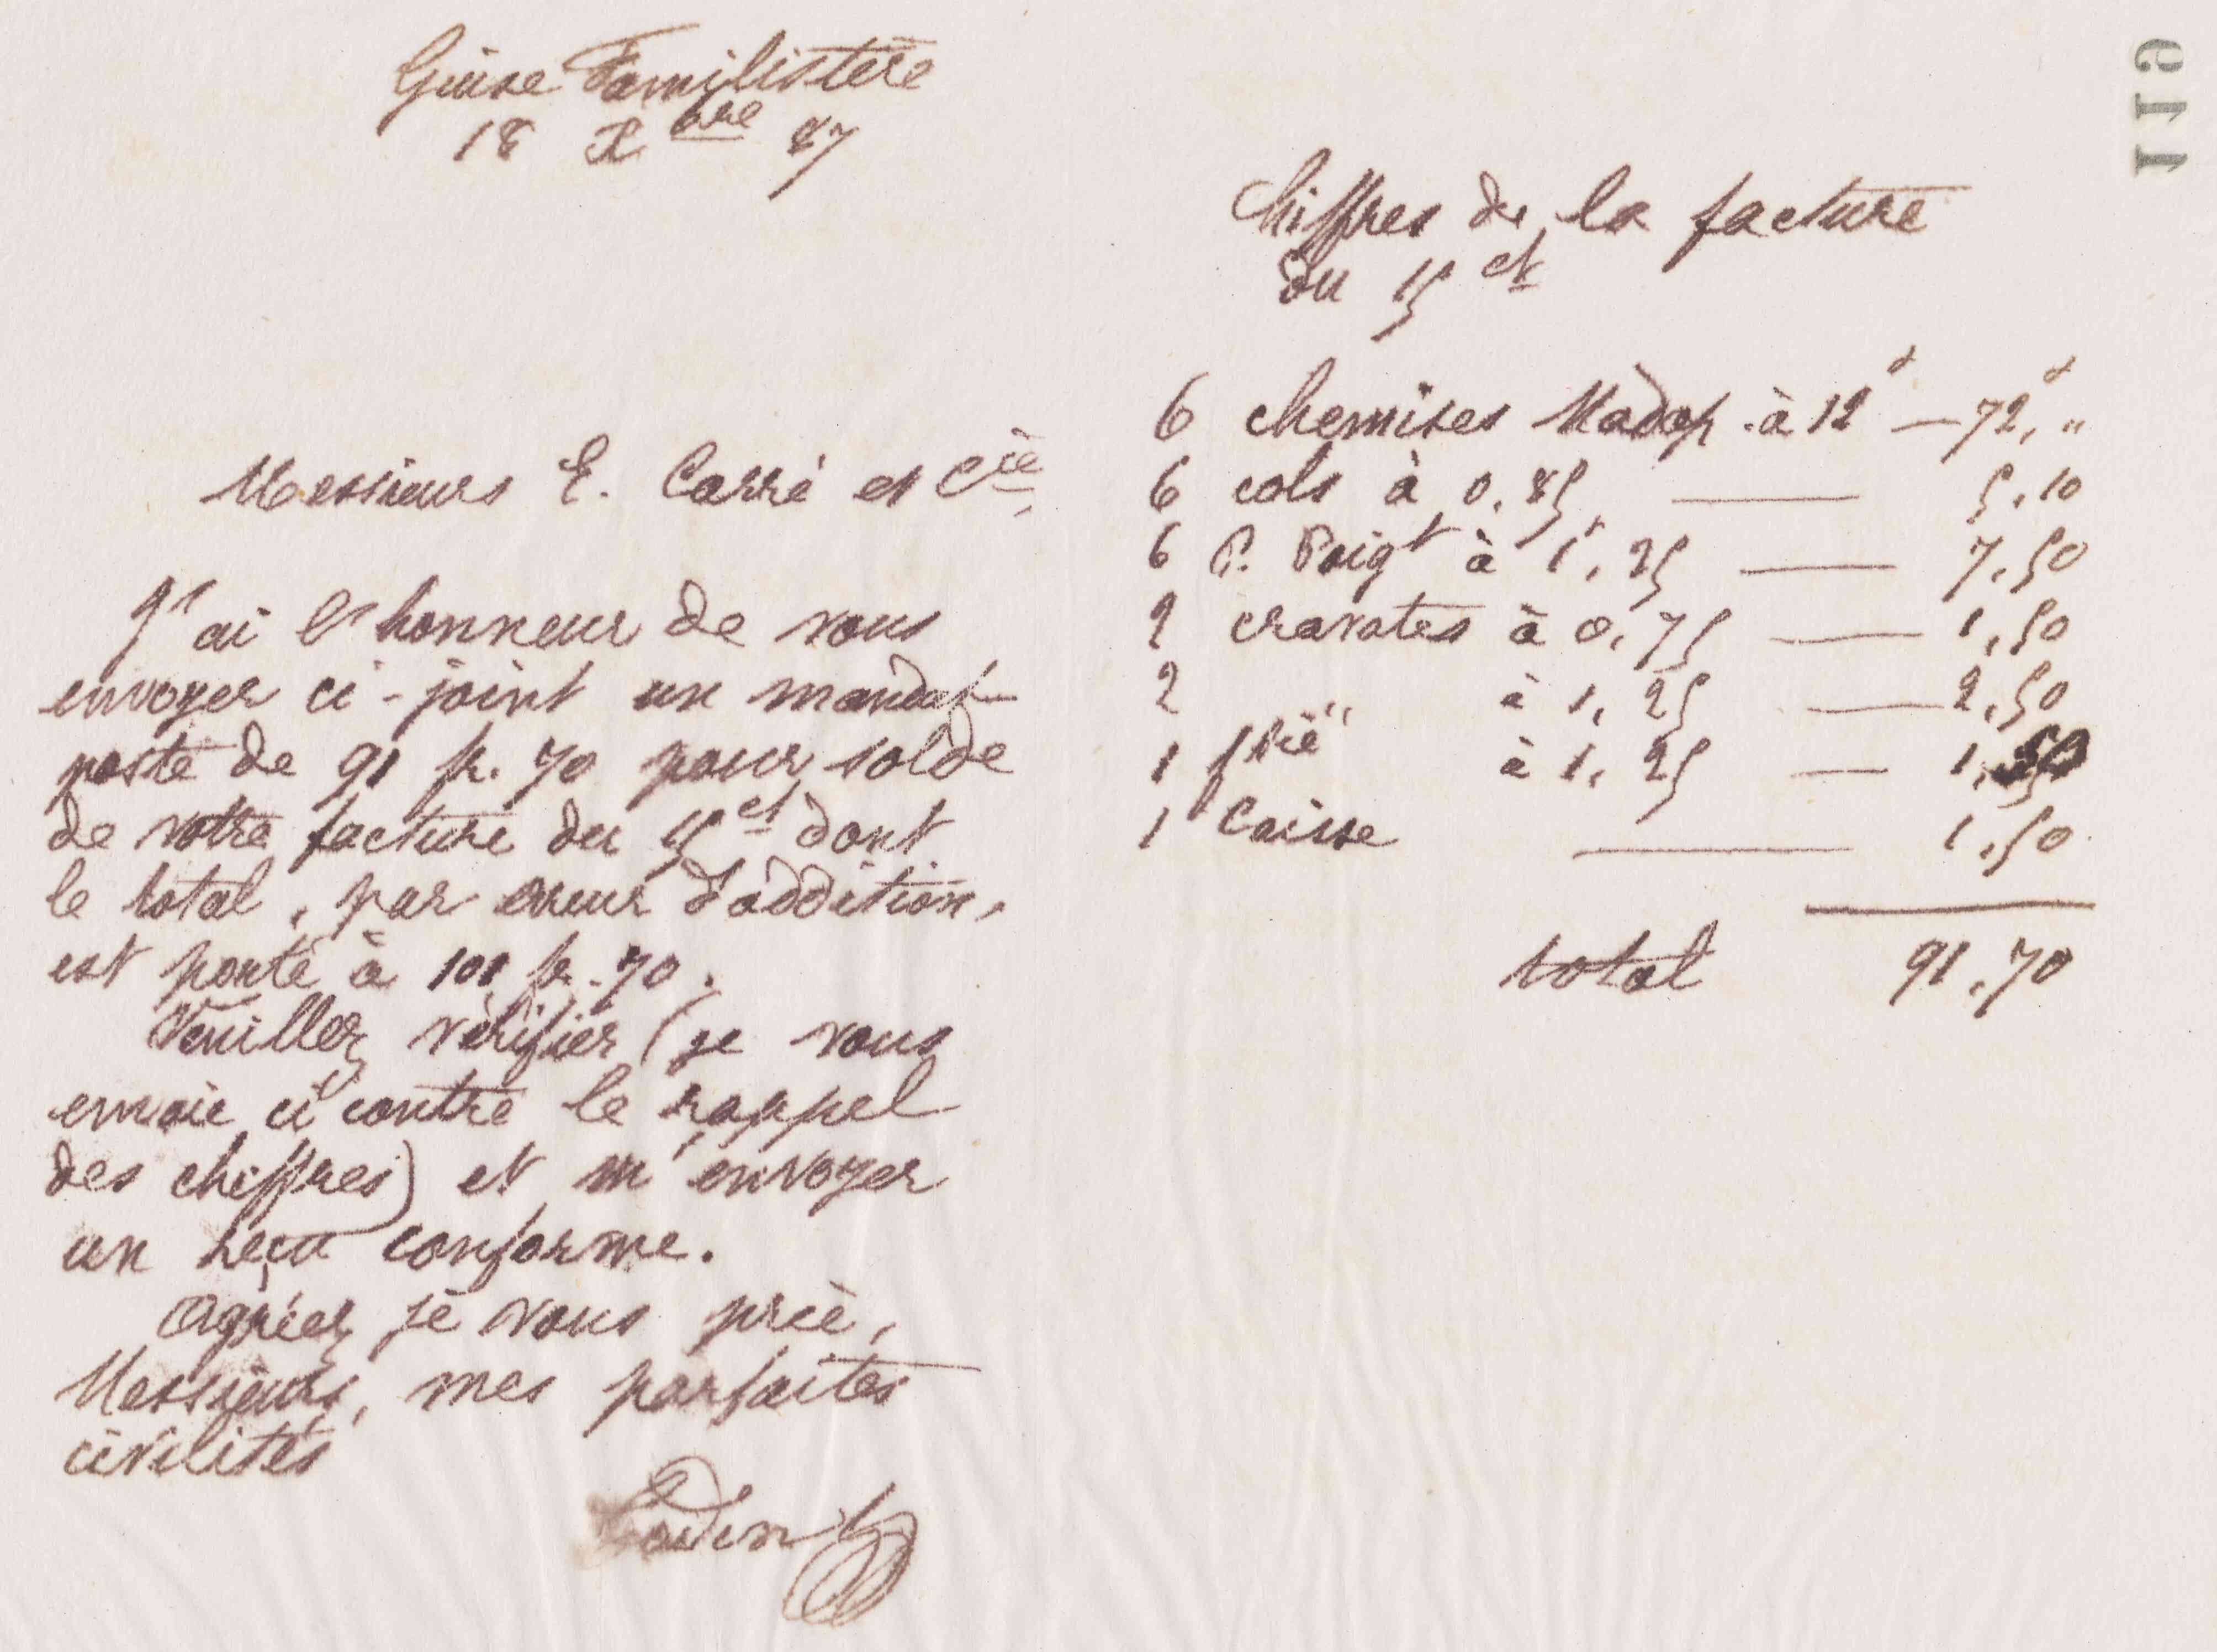 Guise Familistère
18 Xbre 87
Messieurs E. Carré et Cie,
J'ai l'honneur de vous
envoyer ci-joint un mandat-
poste de 91 fr. 70 pour solde
de votre facture du 15 ct dont
le total, par erreur d'addition,
est porté à 101 fr. 70.
Veuillez vérifier (je vous
envoie ci contre le rappel
des chiffres) et m'envoyer
un reçu conforme.
Agréez, je vous prie,
Messieurs, mes parfaites
civilités
Godin
119
Chiffres de la facture
du 15 ct
6 chemises Madap. à 12 f — 72 f, "
6 cols à 0,85 — 5,10
6 P. Poigt à 1 f, 25 — 7,50
2 cravates à 0,75 — 1,50
2 " à 1,25 — 2,50
1 à 1,25 — 1,
1 Caisse — 1,50
total 91,70